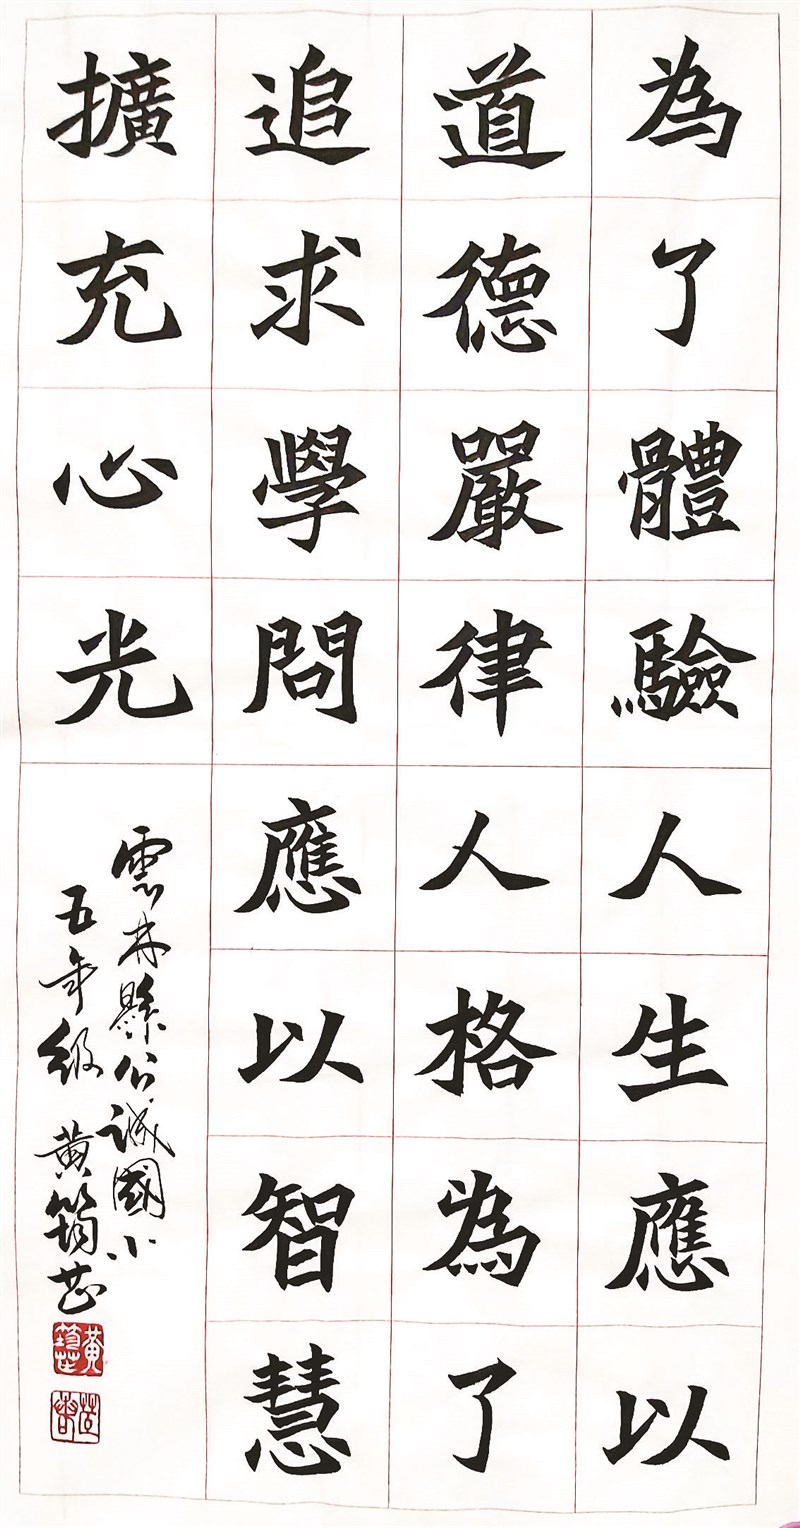 為了體驗人生應以
道德嚴律人格為了
追求學問應以智慧
擴充心光
雲林縣公誠國小
五年級 黃筠芯